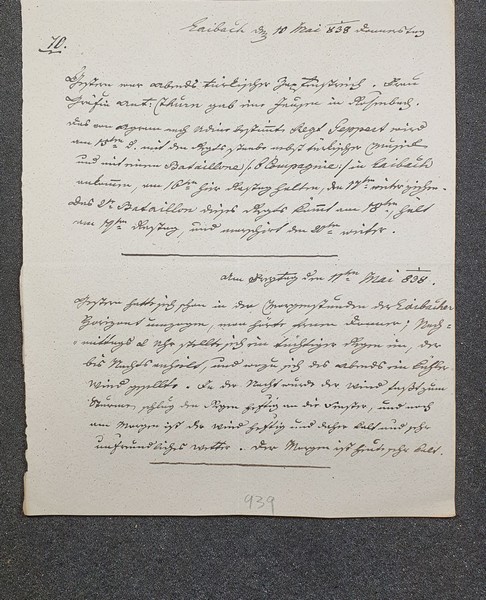 Laibach den 10 Mai 838 Donnerstag
70.
Gestern war abends türkischer Zapfenstreich. Frau
Gräfin Ant: Thurn gab eine Jausen in Rosenbach.
Das von Agram nach Udine bestimmte Regt Geppert wird
am 15ten d. mit dem Regts stabe nebst türkischer Musik
und mit einem Bataillone /: 6 Compagnie :/ in Laibach
ankommen, am 16ten hier Rasttag halten, den 17ten weiter ziehen.
Das 2te Bataillon dieses Regts kömmt am 18ten, hält
am 19ten Rasttag, und marschirt den 20ten weiter.
Am Freytag den 11ten Mai 838.
Gestern hatte sich schon in den Morgenstunden der Laibacher
Horizont umzogen, man hörte fernen Donner; Nach-
mittags 2 Uhr stellte sich ein tüchtiger Regen ein, der
bis Nachts anhielt, und wozu sich des abends ein kühler
Wind gesellte. In der Nacht wurde der Wind fast zum
Sturme, schlug den Regen heftig an die Fenster, und noch
am Morgen ist der Wind heftig und daher kalt und sehr
unfreundliches Wetter. Der Morgen ist heute sehr kalt.
939